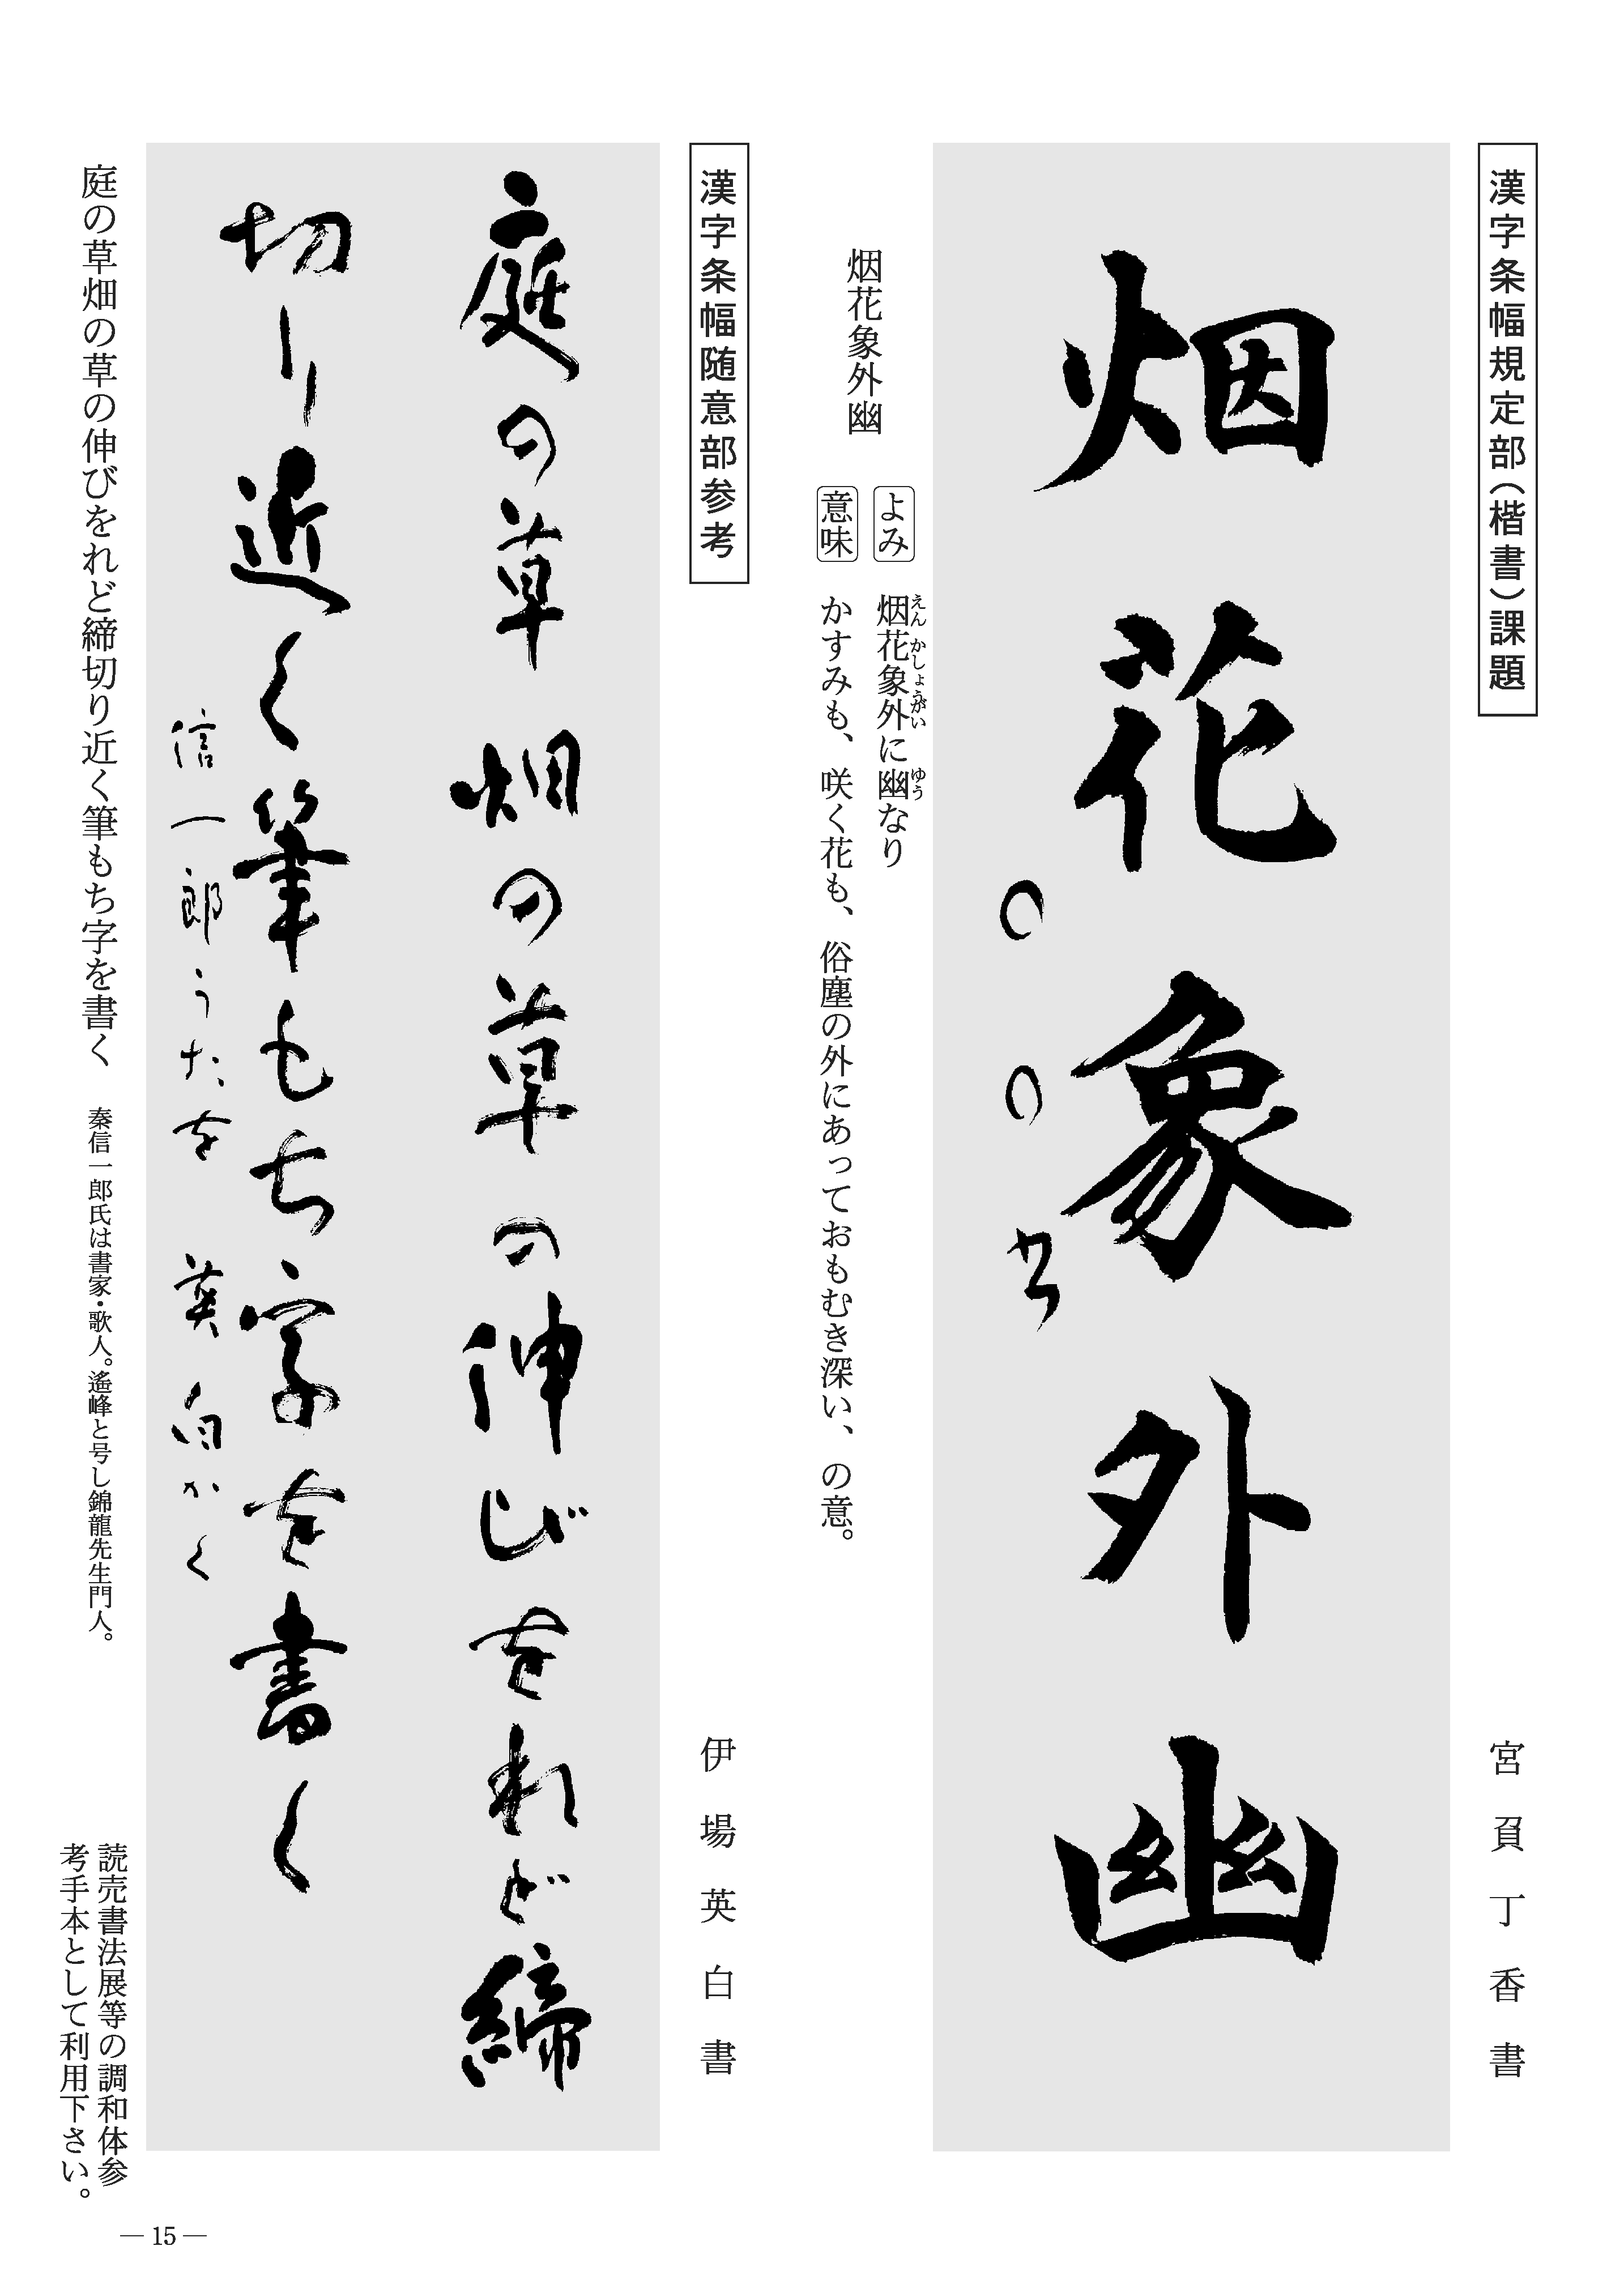 漢字条幅規定部(楷書)課題
宮負丁香書
烟花象外幽
〇〇書
よみ 烟花象外に幽なり
えんかしょうがい ゆう
烟花象外幽
意味 かすみも、咲く花も、俗塵の外にあっておもむき深い、の意。
漢字条幅随意部参考
伊場英白書
庭の草畑の草の伸びをれど締
切り近く筆もち字を書く
信一郎うたを 英白かく
庭の草畑の草の伸びをれど締切り近く筆もち字を書く 秦信一郎氏は書家・歌人。遙峰と号し錦龍先生門人。
読売書法展等の調和体参
考手本として利用下さい。
— 15 —